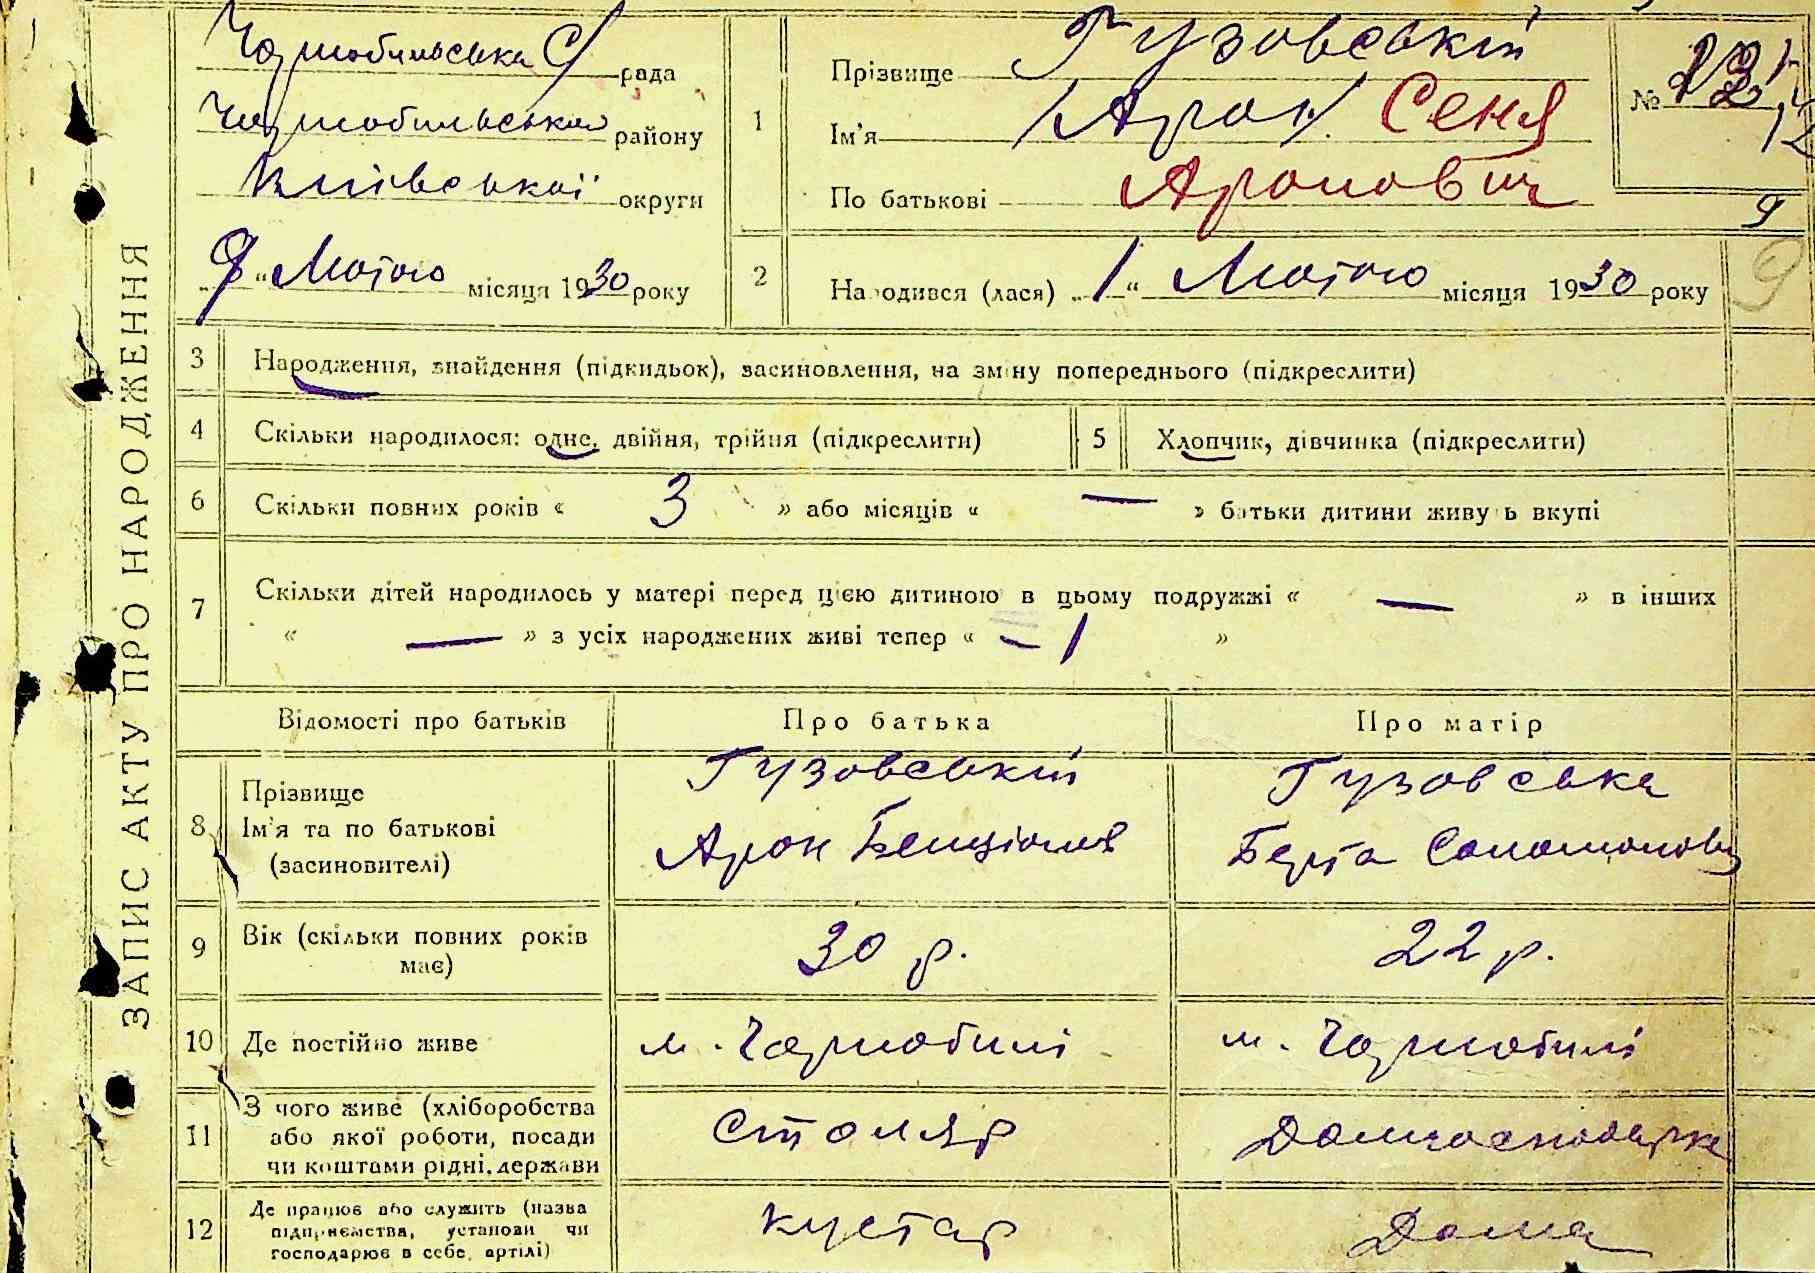 ЗАПИС АКТУ ПРО НАРОДЖЕННЯ
Чорнобильська С/ рада
Чорнобильського району
Київської округи
"9" Лютого місяця 1930 року
1
Прізвище Гузовський
Ім'я (Арон) Сеня
По батькові Аронович
№
9
9
2
Народився (лася) „1“ Лютого місяця 1930 року
3 Народження, знайдення (підкидьок), засиновлення, на зміну попереднього (підкреслити)
4 Скільки народилося: одне, двійня, трійня (підкреслити)
5 Хлопчик, дівчинка (підкреслити)
6 Скільки повних років « 3 » або місяців « — » батьки дитини живуть вкупі
7 Скільки дітей народилось у матері перед цією дитиною в цьому подружжі « — » в інших
« — » з усіх народжених живі тепер « – 1 »
Відомості про батьків Про батька Про матір
8 Прізвище Гузовський Гузовська
Ім'я та по батькові Арон Бенціонов Берта Соломоновн
(засиновителі)
9 Вік (скільки повних років має) 30 р. 22 р.
10 Де постійно живе м. Чорнобилі м. Чорнобилі
11 З чого живе (хліборобства
або якої роботи, посади Столяр Домгосподарка
чи коштами рідні, держави
12 Де працює або служить (назва
підприємства, установи чи Кустар Дома
господарює в себе, артілі)